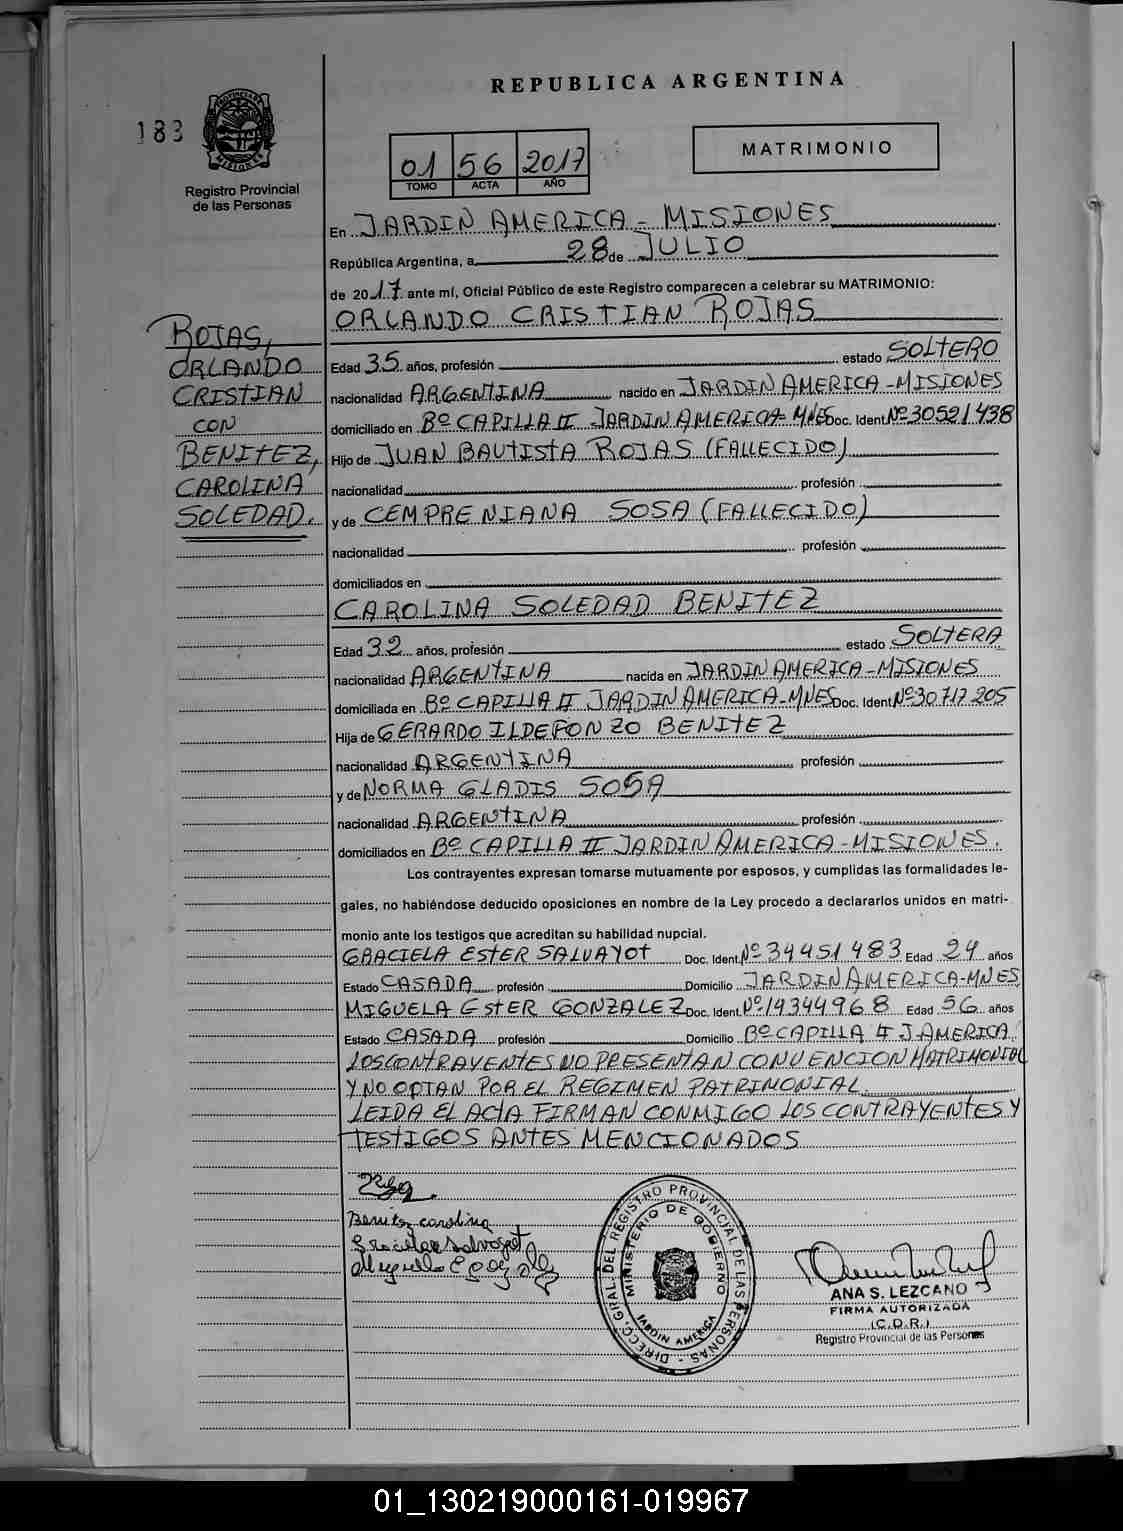 REPUBLICA ARGENTINA
183
Registro Provincial
de las Personas
01 56 2017
TOMO ACTA AÑO
MATRIMONIO
En JARDIN AMERICA - MISIONES
República Argentina, a 28 de JULIO
de 2017 ante mí, Oficial Público de este Registro comparecen a celebrar su MATRIMONIO:
ORLANDO CRISTIAN ROJAS
ROJAS,
ORLANDO
CRISTIAN
CON
BENITEZ,
CAROLINA
SOLEDAD.
Edad 35 años, profesión estado SOLTERO
nacionalidad ARGENTINA nacido en JARDIN AMERICA - MISIONES
domiciliado en Bº CAPILLA II JARDIN AMERICA - MNES Doc. Ident. Nº 30521438
Hijo de JUAN BAUTISTA ROJAS (FALLECIDO)
nacionalidad profesión
y de CEMPRENIANA SOSA (FALLECIDO)
nacionalidad profesión
domiciliados en
CAROLINA SOLEDAD BENITEZ
Edad 32 años, profesión estado SOLTERA
nacionalidad ARGENTINA nacida en JARDIN AMERICA - MISIONES
domiciliada en Bº CAPILLA II JARDIN AMERICA - MNES Doc. Ident. Nº 30717205
Hija de GERARDO ILDEFONZO BENITEZ
nacionalidad ARGENTINA profesión
y de NORMA GLADIS SOSA
nacionalidad ARGENTINA profesión
domiciliados en Bº CAPILLA II JARDIN AMERICA - MISIONES.
Los contrayentes expresan tomarse mutuamente por esposos, y cumplidas las formalidades le-
gales, no habiéndose deducido oposiciones en nombre de la Ley procedo a declararlos unidos en matri-
monio ante los testigos que acreditan su habilidad nupcial.
GRACIELA ESTER SALVAYOT Doc. Ident. Nº 34451483 Edad 29 años
Estado CASADA profesión Domicilio JARDIN AMERICA - MNES
MIGUELA ESTER GONZALEZ Doc. Ident. Nº 14344968 Edad 56 años
Estado CASADA profesión Domicilio Bº CAPILLA II J AMERICA
LOS CONTRAYENTES NO PRESENTAN CONVENCION MATRIMONIAL
Y NO OPTAN POR EL REGIMEN PATRIMONIAL.
LEIDA EL ACTA FIRMAN CONMIGO LOS CONTRAYENTES Y
TESTIGOS ANTES MENCIONADOS
Benitez carolina
DIRECC. GRAL. DEL REGISTRO PROVINCIAL DE LAS PERSONAS
MINISTERIO DE GOBIERNO
JARDIN AMERICA
ANA S. LEZCANO
FIRMA AUTORIZADA
(C.D.R.)
Registro Provincial de las Personas
01_130219000161-019967